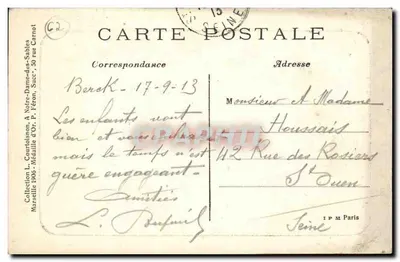 C2
13
SEINE
CARTE POSTALE
Correspondance
Adresse
Berck - 17-9-13
Les enfants vont
bien et vous
mais le temps n'est
guère engageant -
Amitiés
L.
Monsieur A Madame
Houssais
42 Rue des Rosiers
St Ouen
Seine
I P M Paris
Collection L. Courtelamon, A Notre-Dame-des-Sables
Marseille 1906 - Médaille d'Or. P. Féron, Succr, 50 rue Carnot